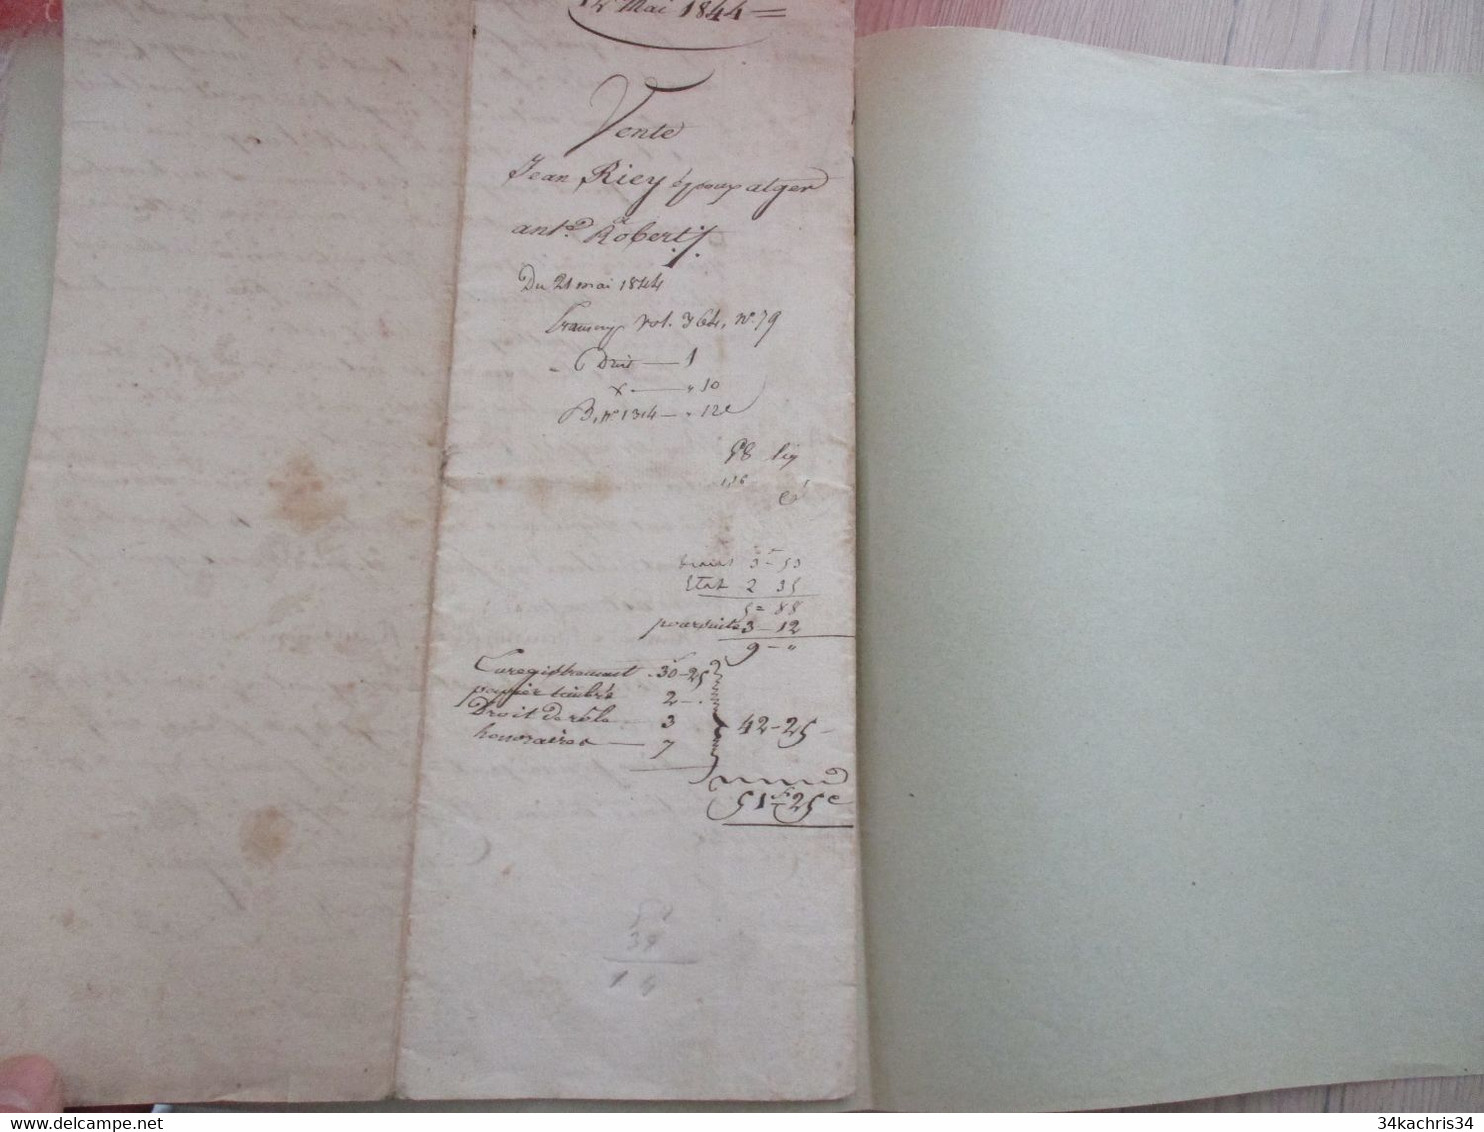 Mai 1844 =
Vente
Jean Riey époux alger
à
ant.d Robert
Du 21 mai 1844
vol. 364, n.o 79
Droit — 1
x — " 10
B, n.o 1314 — " 12
98 lig
3 - 53
Etat 2 35
5 = 88
poursuite 3 - 12
9 - "
Enregistrement . 30-25
papier timbré 2 - .
Droit de rôle 3
honoraires — 7
42-25 -
51 f 25 c
39
1
www.delcampe.net
34kachris34